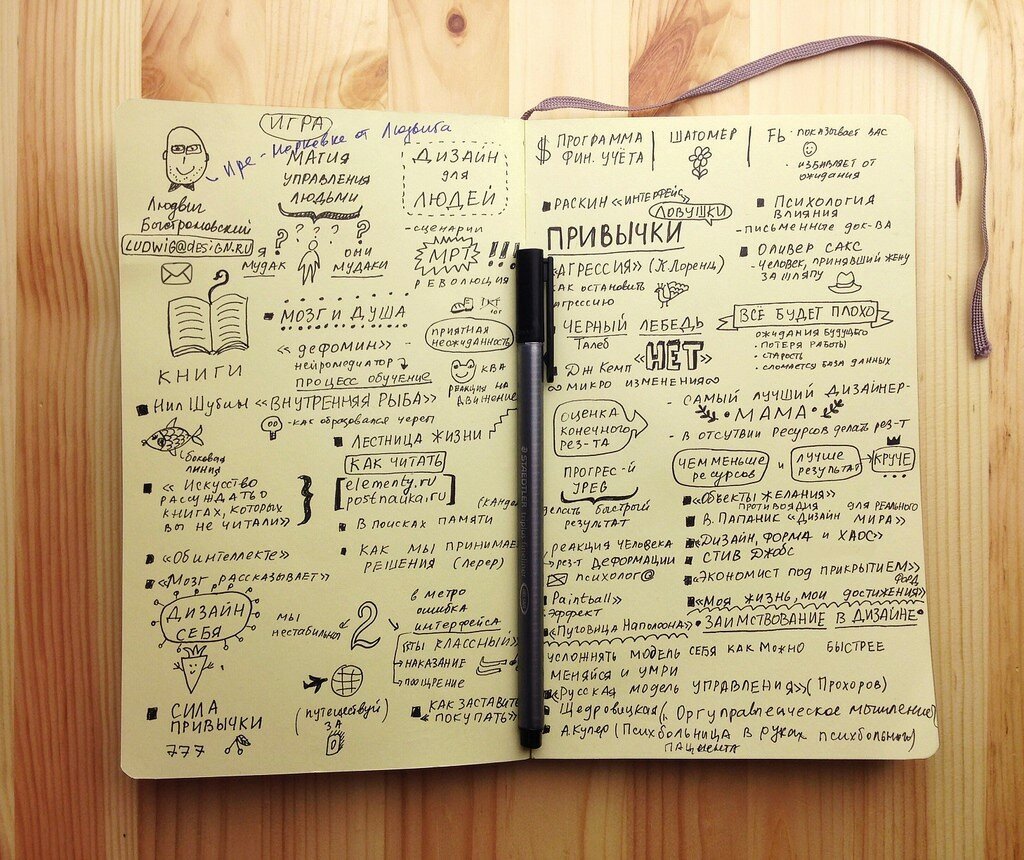 ИГРА
Пре-
от Людвига
Людвиг
Быстроновский
LUDWIG@DESIGN.RU
КНИГИ
МАГИЯ
УПРАВЛЕНИЯ
ЛЮДЬМИ
? ? ? ? ?
Я
МУДАК
ОНИ
МУДАКИ
ДИЗАЙН
для
ЛЮДЕЙ
- СЦЕНАРИИ
МРТ !!!
РЕВОЛЮЦИЯ
МОЗГ И ДУША
« дефомин» -
нейромедиатор
ПРОЦЕСС ОБУЧЕНИЕ
ПРИЯТНАЯ
НЕОЖИДАННОСТЬ
КВА
РЕАКЦИЯ НА
ДВИЖЕНИЕ
НИЛ ШУБИН «ВНУТРЕННЯЯ РЫБА»
- КАК ОБРАЗОВАЛСЯ ЧЕРЕП
БОКОВАЯ
ЛИНИЯ
ЛЕСТНИЦА ЖИЗНИ
КАК ЧИТАТЬ
elementy.ru
postnauka.ru
« Искусство
рассуждать о
книгах, которых
вы не читали»
В поисках памяти
«Об интеллекте»
КАК МЫ ПРИНИМАЕ
РЕШЕНИЯ (лерер)
«Мозг рассказывает»
ДИЗАЙН
СЕБЯ
МЫ
нестабильны
2
в метро
ошибка
интерфейса
(ТЫ КЛАССНЫЙ)
НАКАЗАНИЕ
ПООЩРЕНИЕ
СИЛА
ПРИВЫЧКИ
777
(ПУТЕШЕСТВУЙ)
ЗА
КАК ЗАСТАВИТ
«ПОКУПАТЬ»
$ ПРОГРАММА
ФИН. УЧЁТА
ШАГОМЕР
Fb - ПОКАЗЫВАЕТ ВАС
- ИЗБАВЛЯЕТ ОТ
ОЖИДАНИЯ
РАСКИН «ИНТЕРФЕЙС»
ЛОВУШКИ
ПРИВЫЧКИ
ПСИХОЛОГИЯ
ВЛИЯНИЯ
- ПИСЬМЕННЫЕ ДОК-ВА
«АГРЕССИЯ» (К. Лоренц)
КАК ОСТАНОВИТЬ
агрессию
ОЛИВЕР САКС
- ЧЕЛОВЕК, ПРИНЯВШИЙ ЖЕНУ
ЗА ШЛЯПУ
ЧЕРНЫЙ ЛЕБЕДЬ
Талеб
ДЖ КЕМП
«НЕТ»
∞ МИКРО ИЗМЕНЕНИЯ ∞
ВСЁ БУДЕТ ПЛОХО
ОЖИДАНИЯ БУДУЩЕГО
- ПОТЕРЯ РАБОТЫ
- СТАРОСТЬ
- СЛОМАЕТСЯ БАЗА ДАННЫХ
ОЦЕНКА
КОНЕЧНОГО
РЕЗ-ТА
- САМЫЙ ЛУЧШИЙ ДИЗАЙНЕР-
• МАМА •
- В ОТСУТВИИ РЕСУРСОВ ДЕЛАТЬ РЕЗ-Т
ЧЕМ МЕНЬШЕ
РЕСУРСОВ
и
ЛУЧШЕ
РЕЗУЛЬТАТ
КРУЧЕ
ПРОГРЕС-Й
JPEG
делать быстрый
результат
«ОБЪЕКТЫ ЖЕЛАНИЯ»
ПРОТИВОЯДИЯ
В. ПАПАНИК «ДИЗАЙН ДЛЯ РЕАЛЬНОГО МИРА»
«ДИЗАЙН, ФОРМА И ХАОС»
СТИВ ДЖОБС
РЕАКЦИЯ ЧЕЛОВЕКА
РЕЗ-Т ДЕФОРМАЦИИ
ПСИХОЛОГ@
«ЭКОНОМИСТ ПОД ПРИКРЫТИЕМ»
«МОЯ ЖИЗНЬ, МОИ ДОСТИЖЕНИЯ»
ФОРД
Paintball»
эффект
«ПУГОВИЦА НАПОЛЕОНА»
• ЗАИМСТВОВАНИЕ В ДИЗАЙНЕ •
УСЛОЖНЯТЬ МОДЕЛЬ СЕБЯ КАК МОЖНО БЫСТРЕЕ
МЕНЯЙСЯ И УМРИ
«Русская модель УПРАВЛЕНИЯ» (Прохоров)
Щедровицкая ( Оргуправленческое мышление)
А. Купер (Психбольница в руках психбольного)
ПАЦИЕНТА
STAEDTLER triplus fineliner